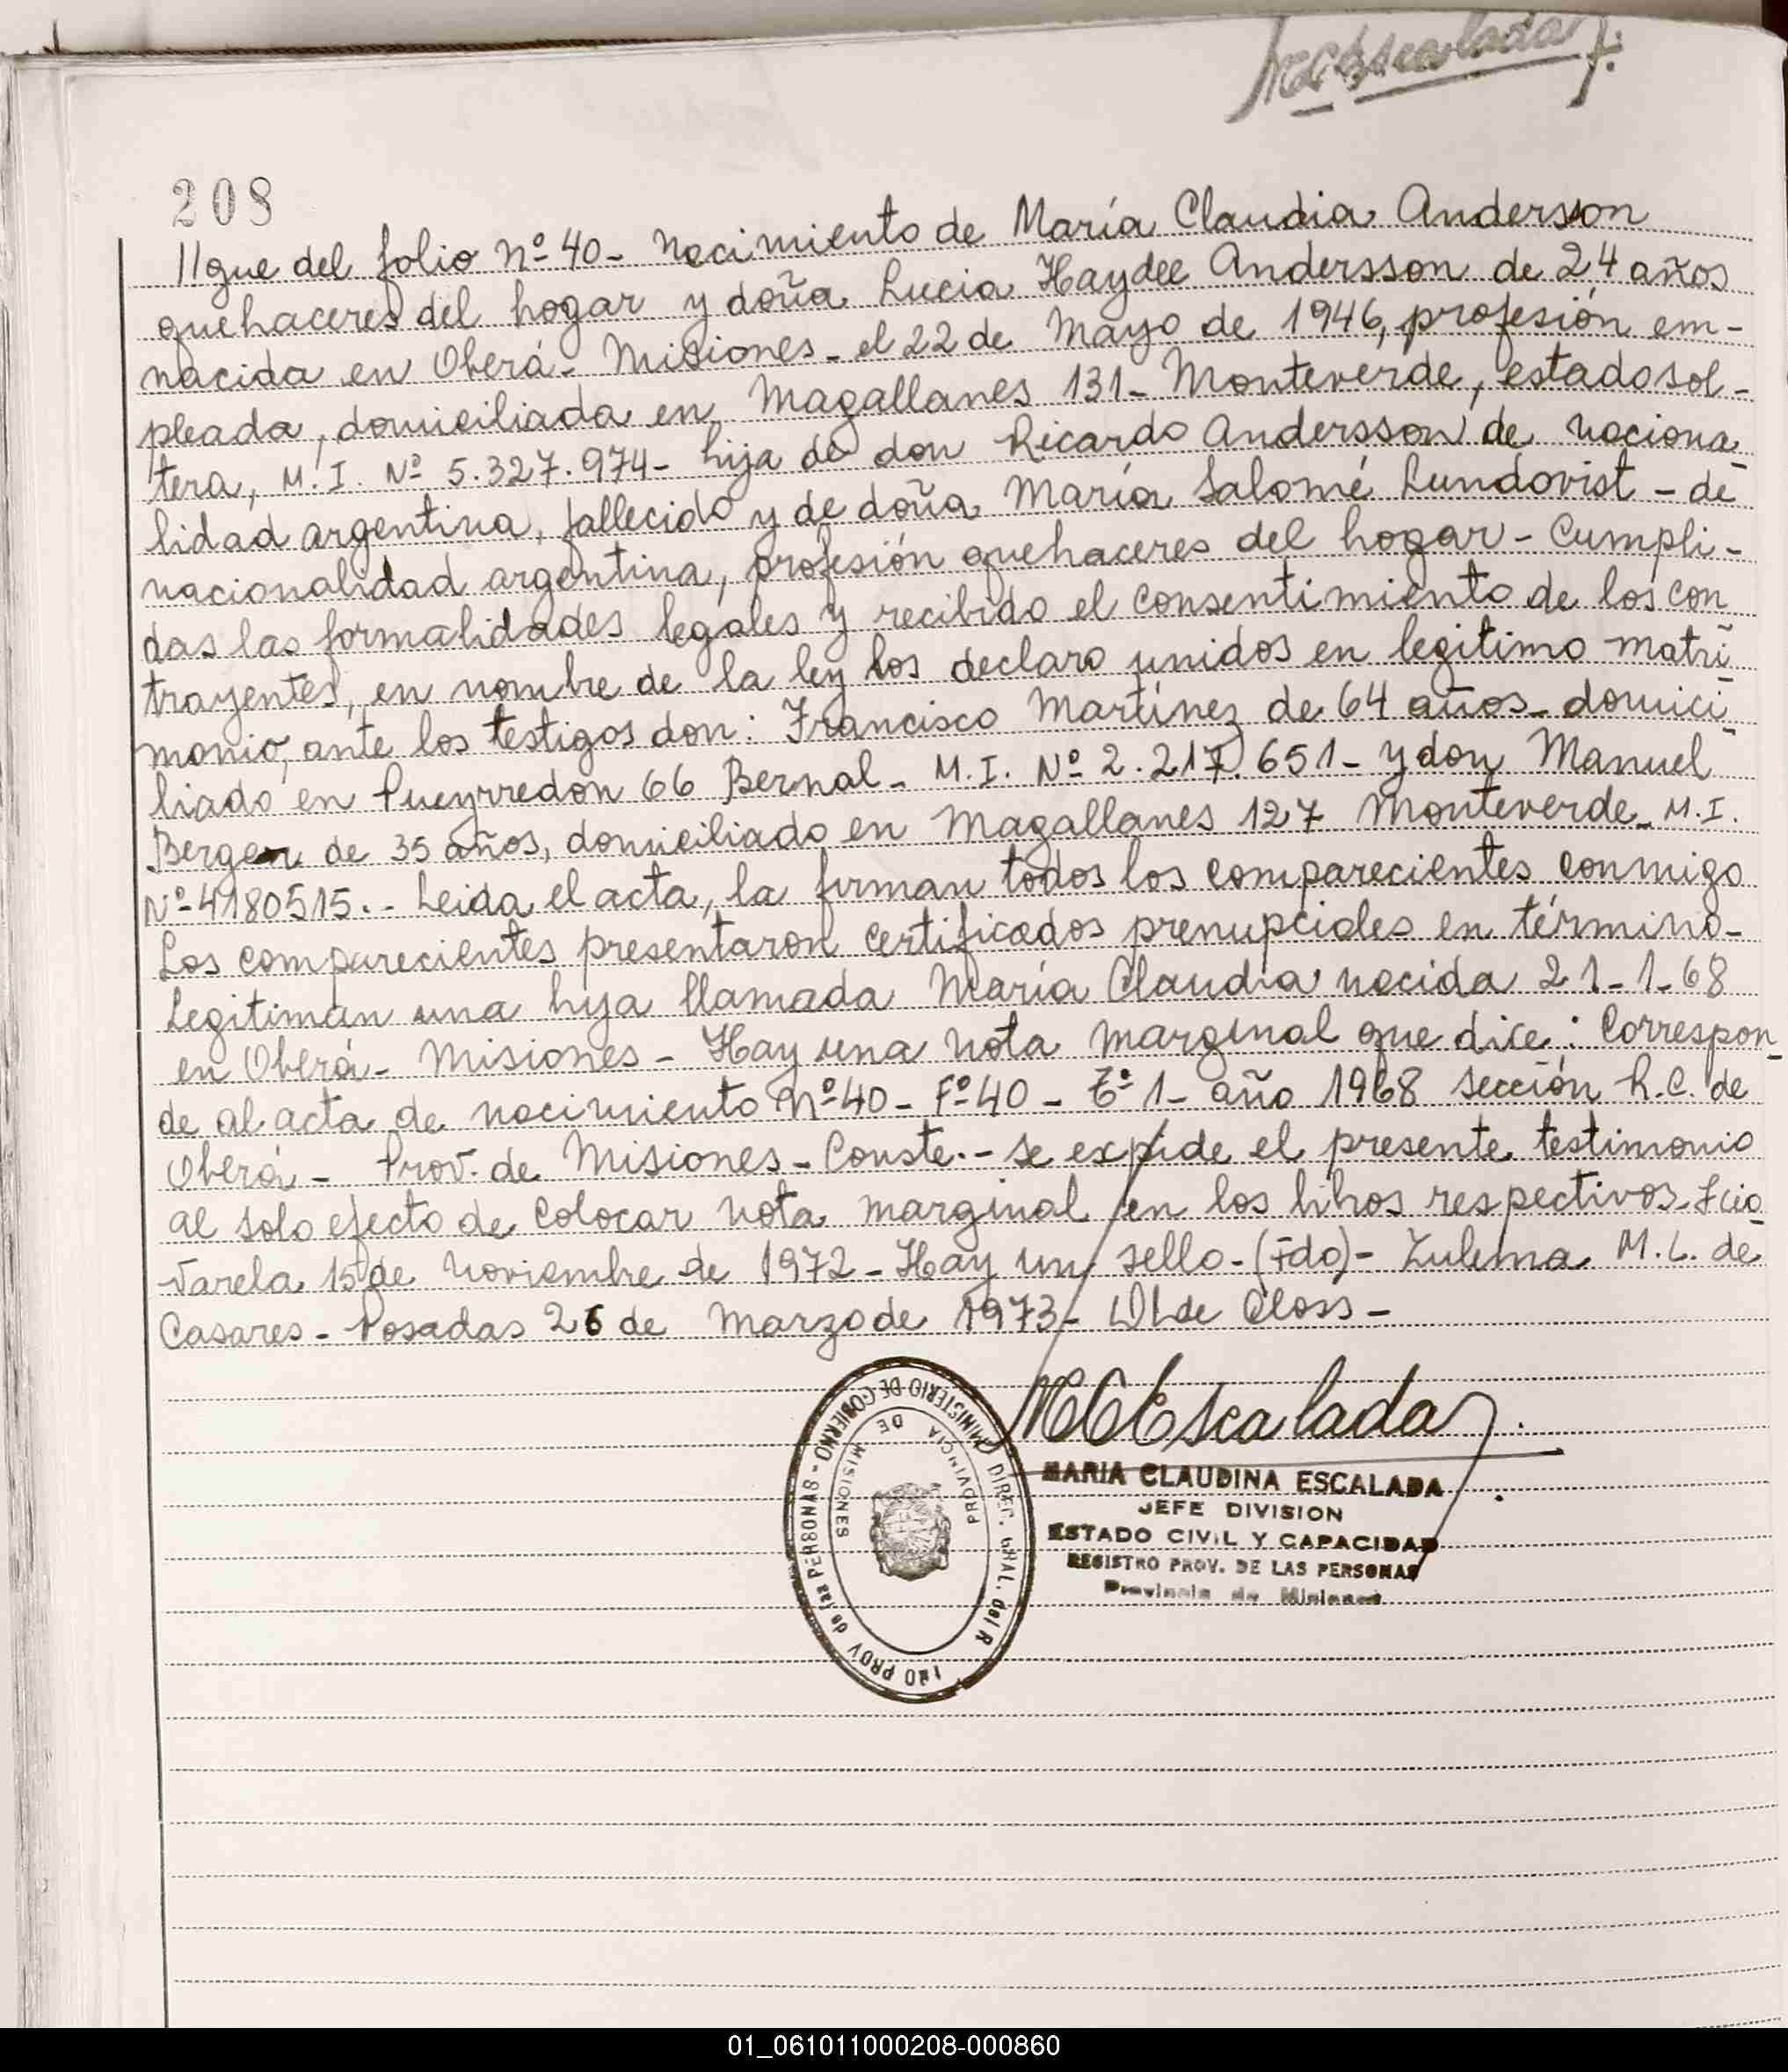 MCEscalada
208
//gue del folio Nº 40- Nacimiento de María Claudia Anderson
quehaceres del hogar y doña Lucia Haydee Andersson de 24 años
nacida en Oberá- Misiones- el 22 de Mayo de 1946, profesión em-
pleada, domiciliada en Magallanes 131- Monteverde, estado sol-
tera, M.I. Nº 5.327.974- hija de don Ricardo Andersson de naciona-
lidad argentina, fallecido y de doña María Salomé Lundovist - de
nacionalidad argentina, profesión quehaceres del hogar - Cumpli-
das las formalidades legales y recibido el consentimiento de los con
trayentes, en nombre de la ley los declaro unidos en legitimo matri-
monio, ante los testigos don: Francisco Martínez de 64 años- domici-
liado en Pueyrredon 66 Bernal- M.I. Nº 2.217.651- y don Manuel
Bergen de 35 años, domiciliado en Magallanes 127 Monteverde- M.I.
Nº-4180515.- Leida el acta, la firman todos los comparecientes conmigo
Los comparecientes presentaron certificados prenupciales en término-
Legitiman una hija llamada María Claudia nacida 21-1-68
en Oberá- Misiones - Hay una nota marginal que dice: Correspon-
de al acta de nacimiento Nº40- Fº40 - Tº 1- año 1968 sección R.C. de
Oberá - Prov. de Misiones - Conste.- se expide el presente testimonio
al solo efecto de colocar nota marginal en los libros respectivos- Fcio
Varela 15 de Noviembre de 1972 - Hay un sello - (Fdo)- Zulema M.L. de
Casares - Posadas 26 de Marzo de 1973-  de Closs -
MCEscalada
MINISTERIO DE GOBIERNO - DIREC. GRAL. del R PROV de las PERSONAS
PROVINCIA DE MISIONES
MARIA CLAUDINA ESCALADA
JEFE DIVISION
ESTADO CIVIL Y CAPACIDAD
REGISTRO PROV. DE LAS PERSONAS
Provincia de Misiones
01_061011000208-000860